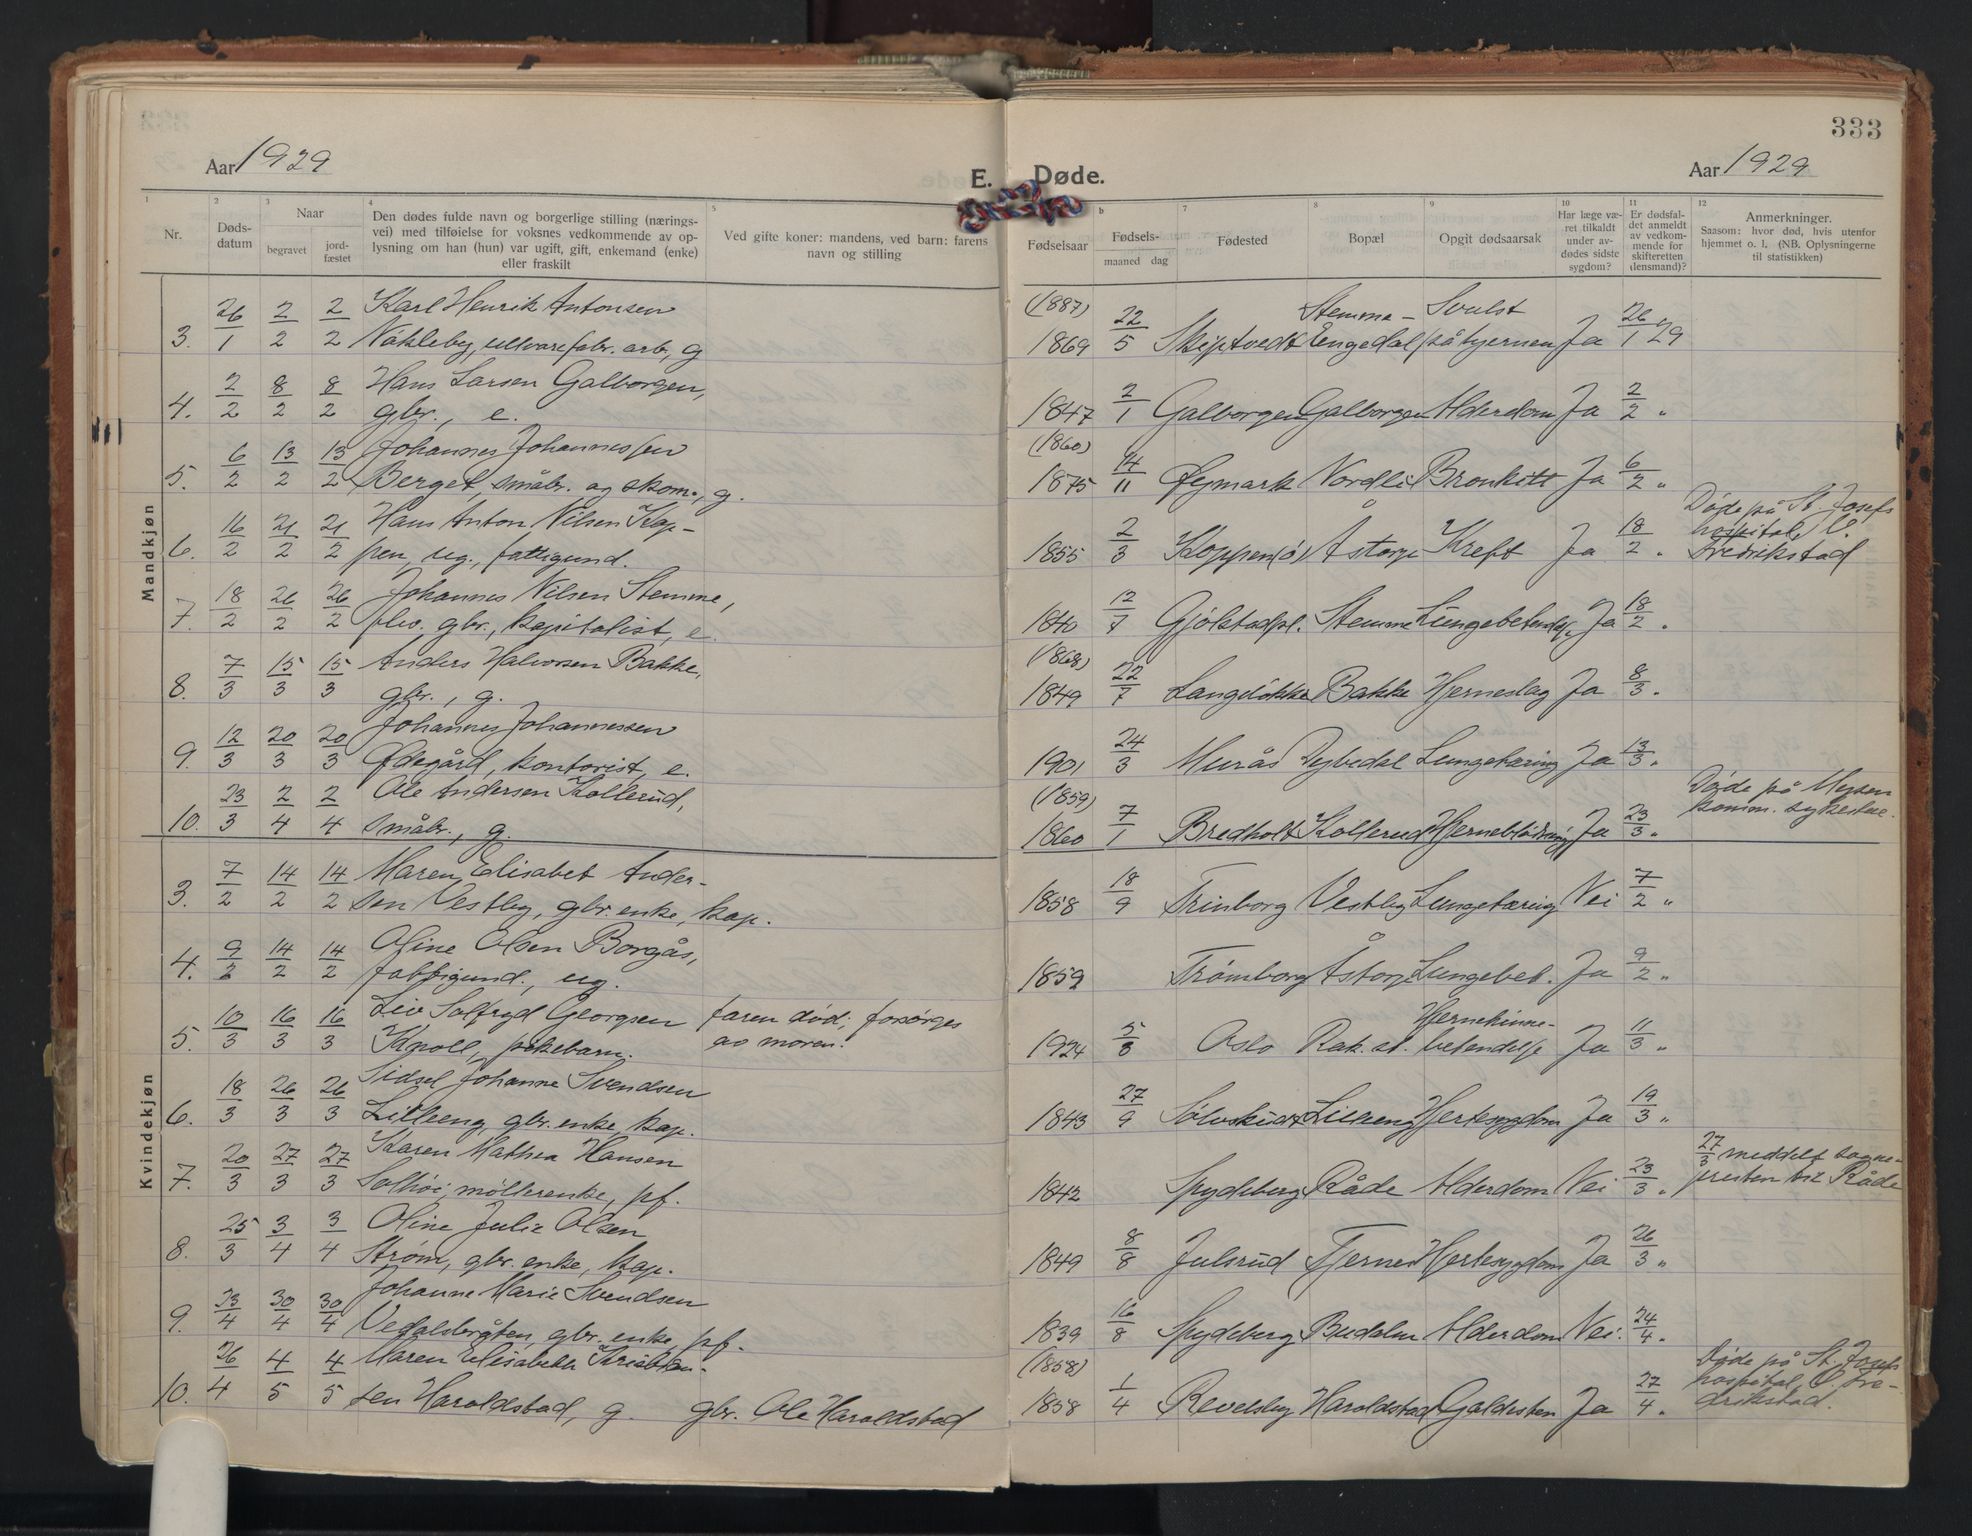 333
Aar 1929
E. Døde.
Aar 1929
1 2 3 4 5 b 7 8 9 10 11 12
Nr.
Døds-
datum
Naar
begravet
jord-
fæstet
Den dødes fulde navn og borgerlige stilling (nærings-
vei) med tilføielse for voksnes vedkommende av op-
lysning om han (hun) var ugift, gift, enkemand (enke)
eller fraskilt
Ved gifte koner: mandens, ved barn: farens
navn og stilling
Fødselsaar
Fødsels-
maaned dag
Fødested
Bopæl
Opgit dødsaarsak
Har læge væ-
ret tilkaldt
under av-
dødes sidste
sygdom?
Er dødsfal-
det anmeldt
av vedkom-
mende for
skifteretten
(lensmand)?
Anmerkninger.
Saasom: hvor død, hvis utenfor
hjemmet o. l. (NB. Oplysningerne
til statistikken)
Mandkjøn
26 2 2 Karl Henrik Antonsen (1887) 22 Stemme- Svulst 26
3. 1 2 2 Nakleby, ullvarefabr. arb., g 1869 5 Skiptvedt Engedal på hjernen Ja 1 29
2 8 8 Hans Larsen Galborgen, 2 2
4. 2 2 2 gbr., e. 1847 1 Galborgen Galborgen Alderdom Ja 2 "
6 13 13 Johannes Johannessen (1860) 14 6
5. 2 2 2 Berget, småbr. og skom., g. 1875 11 Øymark Nordli Bronkitt Ja 2 "
16 21 21 Hans Anton Nilsen Kop- 2 18 Døde på St. Josefs
hospital,
6. 2 2 2 pen, ug., fattigund. 1855 3 Koppen(ø) Åstorp Kreft Ja 2 " Fredrikstad
18 26 26 Johannes Nilsen Stemme, 12 18
7. 2 2 2 flv. gbr., kapitalist, e. 1840 7 Gjølstadpl. Stemme Lungebetendelse Ja 2 "
7 15 15 Anders Halvorsen Bakke, (1868) 22 8
8. 3 3 3 gbr., g. 1849 7 Langløkke Bakke Hjerneslag Ja 3 "
12 20 20 Johannes Johannessen 24 13
9. 3 3 3 Ødegård, kontorist, e. 1901 3 Murås Dybedal Lungetæring Ja 3 "
23 2 2 Ole Andersen Kollerud, (1859) 7 23 Døde på Mysen
komm. sykestue.
10. 3 4 4 småbr., g. 1860 1 Bredholt Kollerud Hjerneblødning Ja 3 "
Kvindekjøn
7 14 14 Maren Elisabet Ander- 18 7
3. 2 2 2 sen Vestby, gbr. enke, kap. 1858 9 Trinborg Vestby Lungetæring Nei 2 "
9 14 14 Oline Olsen Borgås, 9
4. 2 2 2 fattigund., ug. 1859 Trømborg Åstorp Lungebet. Ja 2 "
10 16 16 Liv Solfryd Georgsen faren død; forsørges 5 Hjernehinne- 11
5. 3 3 3 Knoll, pikebarn. av moren. 1924 8 Oslo Rak. st. betendelse Ja 3 "
18 26 26 Sidsel Johanne Svendsen 27 19
6. 3 3 3 Lilleeng, gbr. enke, kap. 1843 9 Sølvskudt Lilleeng Hertesygdom Ja 3 "
20 27 27 Karen Mathea Hansen 23 27/3 meddelt sogne-
7. 3 3 3 Solhøi, møllerenke, pf. 1842 Spydeberg Råde Alderdom Nei 3 " presten til Råde
25 3 3 Oline Julie Olsen 8 26
8. 3 4 4 Strøm, gbr. enke, kap. 1849 8 Julsrud Tjernes Hertesygdom Ja 3 "
23 30 30 Johanne Marie Svendsen 16 24
9. 4 4 4 Vedalsbråten, gbr. enke, pf. 1839 8 Spydeberg Budalen Alderdom Nei. 4 "
26 4 4 Maren Elisabeth Kristian- (1858) 1 27 Døde på St. Josefs
hospital, Fre-
10. 4 5 5 sen Haroldstad, g. gbr. Ole Haroldstad 1858 4 Revelsby Haroldstad Galdesten Ja 4 " drikstad.